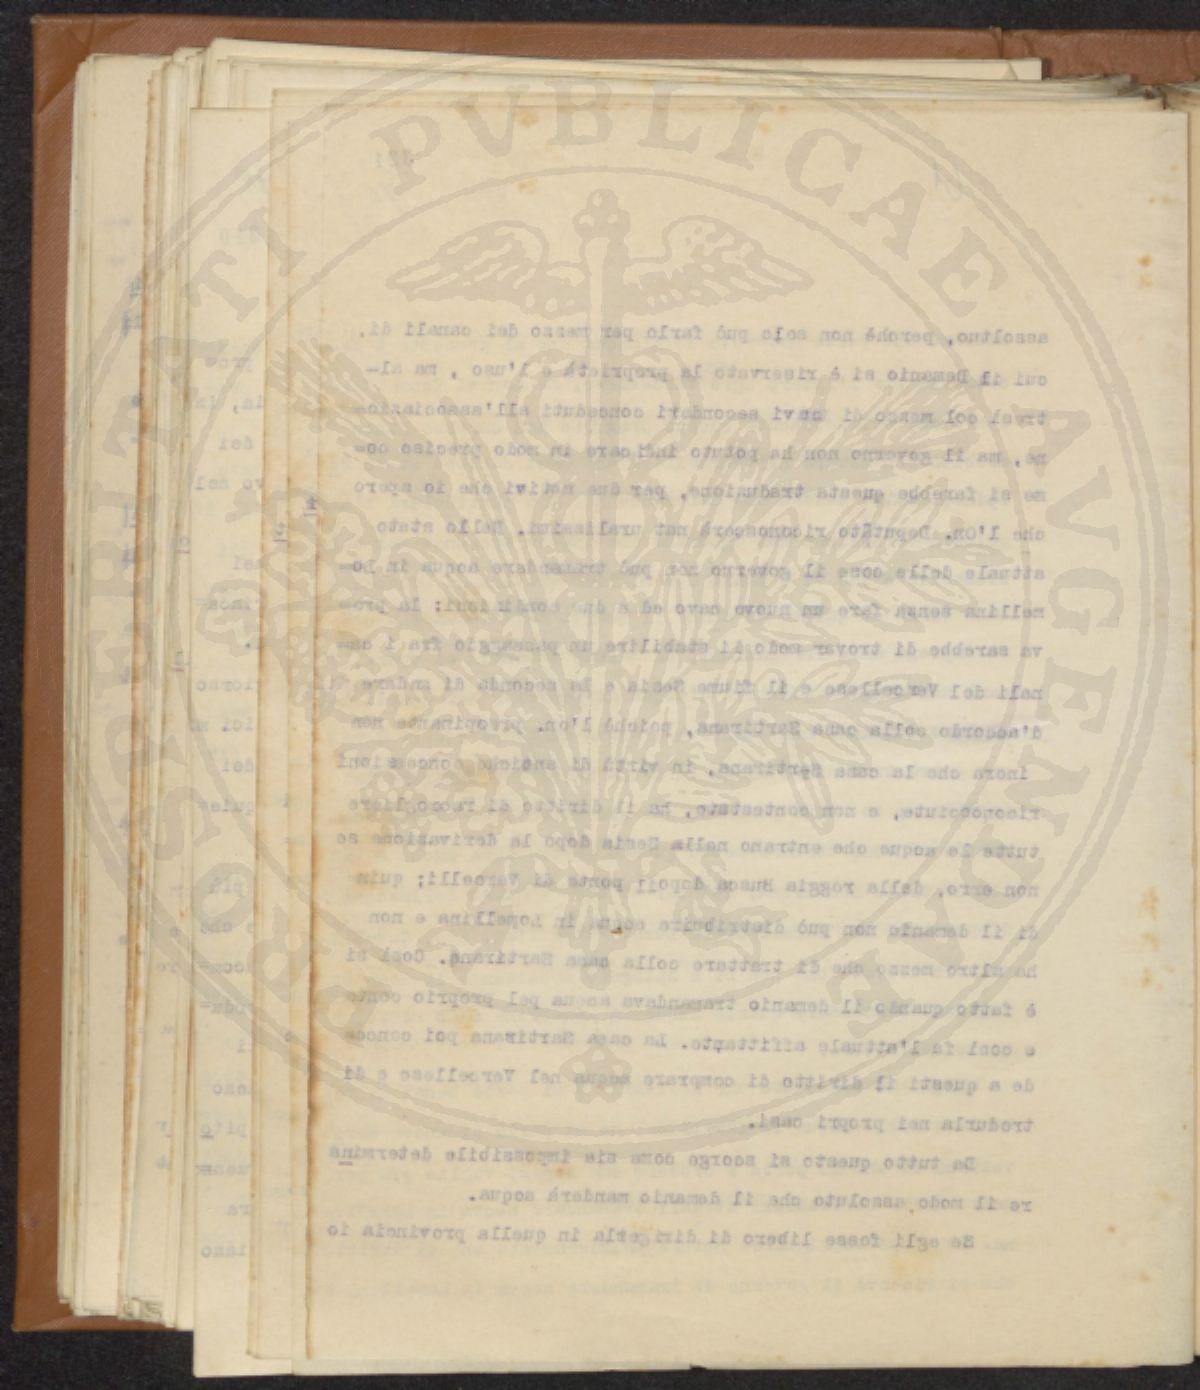 PROSPERITATI PVBLICAE AVGENDAE
assoltuo, perchè non solo può farlo per mezzo dei canali di
cui il Demanio si è riservato la proprietà e l'uso , ma al-
tresì col mezzo di cavi secondari conceduti all'associazio-
ne, ma il governo non ha potuto indicare in modo preciso co-
me si farebbe questa traduzione, per due motivi che io spero
che l'On. Deputato riconoscerà nat uralissimi. Nello stato
attuale delle cose il governo non può tramandare acqua in Lo-
mellina senza fare un nuovo cavo ed a due condizioni: la pro-
va sarebbe di trovar modo di stabilire un passaggio fra i ca-
nali del Vercellese e il fiume Sesia e la seconda di andare
d'accordo colla casa Sartirana, poichè l'on. preopinante non
inora che la casa Sartirana, in virtù di antiche concessioni
riconosciute, e non contestate, ha il diritto di raccogliere
tutte le acque che entrano nella Sesia dopo la derivazione se
non erro, della roggia Busca dopoil ponte di Vercelli; quin-
di il demanio non può distribuire acqua in Lomellina e non
ha altro mezzo che di trattare colla casa Sartirana. Così si
è fatto quando il demanio tramandava acqua pel proprio conto
e così fa l'attuale affittante. La casa Sartirana poi conce-
de a questi il diritto di comprare acqua nel Vercellese e di
trodurla nei propri casi.
Da tutto questo si scorge come sia impossibile determina
re il modo assoluto che il demanio manderà acqua.
Se egli fosse libero di dirigerla in quella provincia io